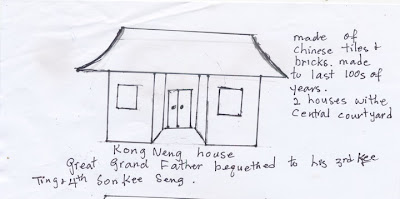 made of
chinese tiles +
bricks. made
to last 100s of
years.
2 houses withe
Central courtyard
Kong Neng house
Great Grand Father bequethed to his 3rd Kee
Ting + 4th Son Kee Seng.